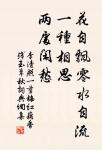 花自飄零水自流
一種相思
兩處閑愁
李清照一剪梅紅藕香
殘玉簟秋